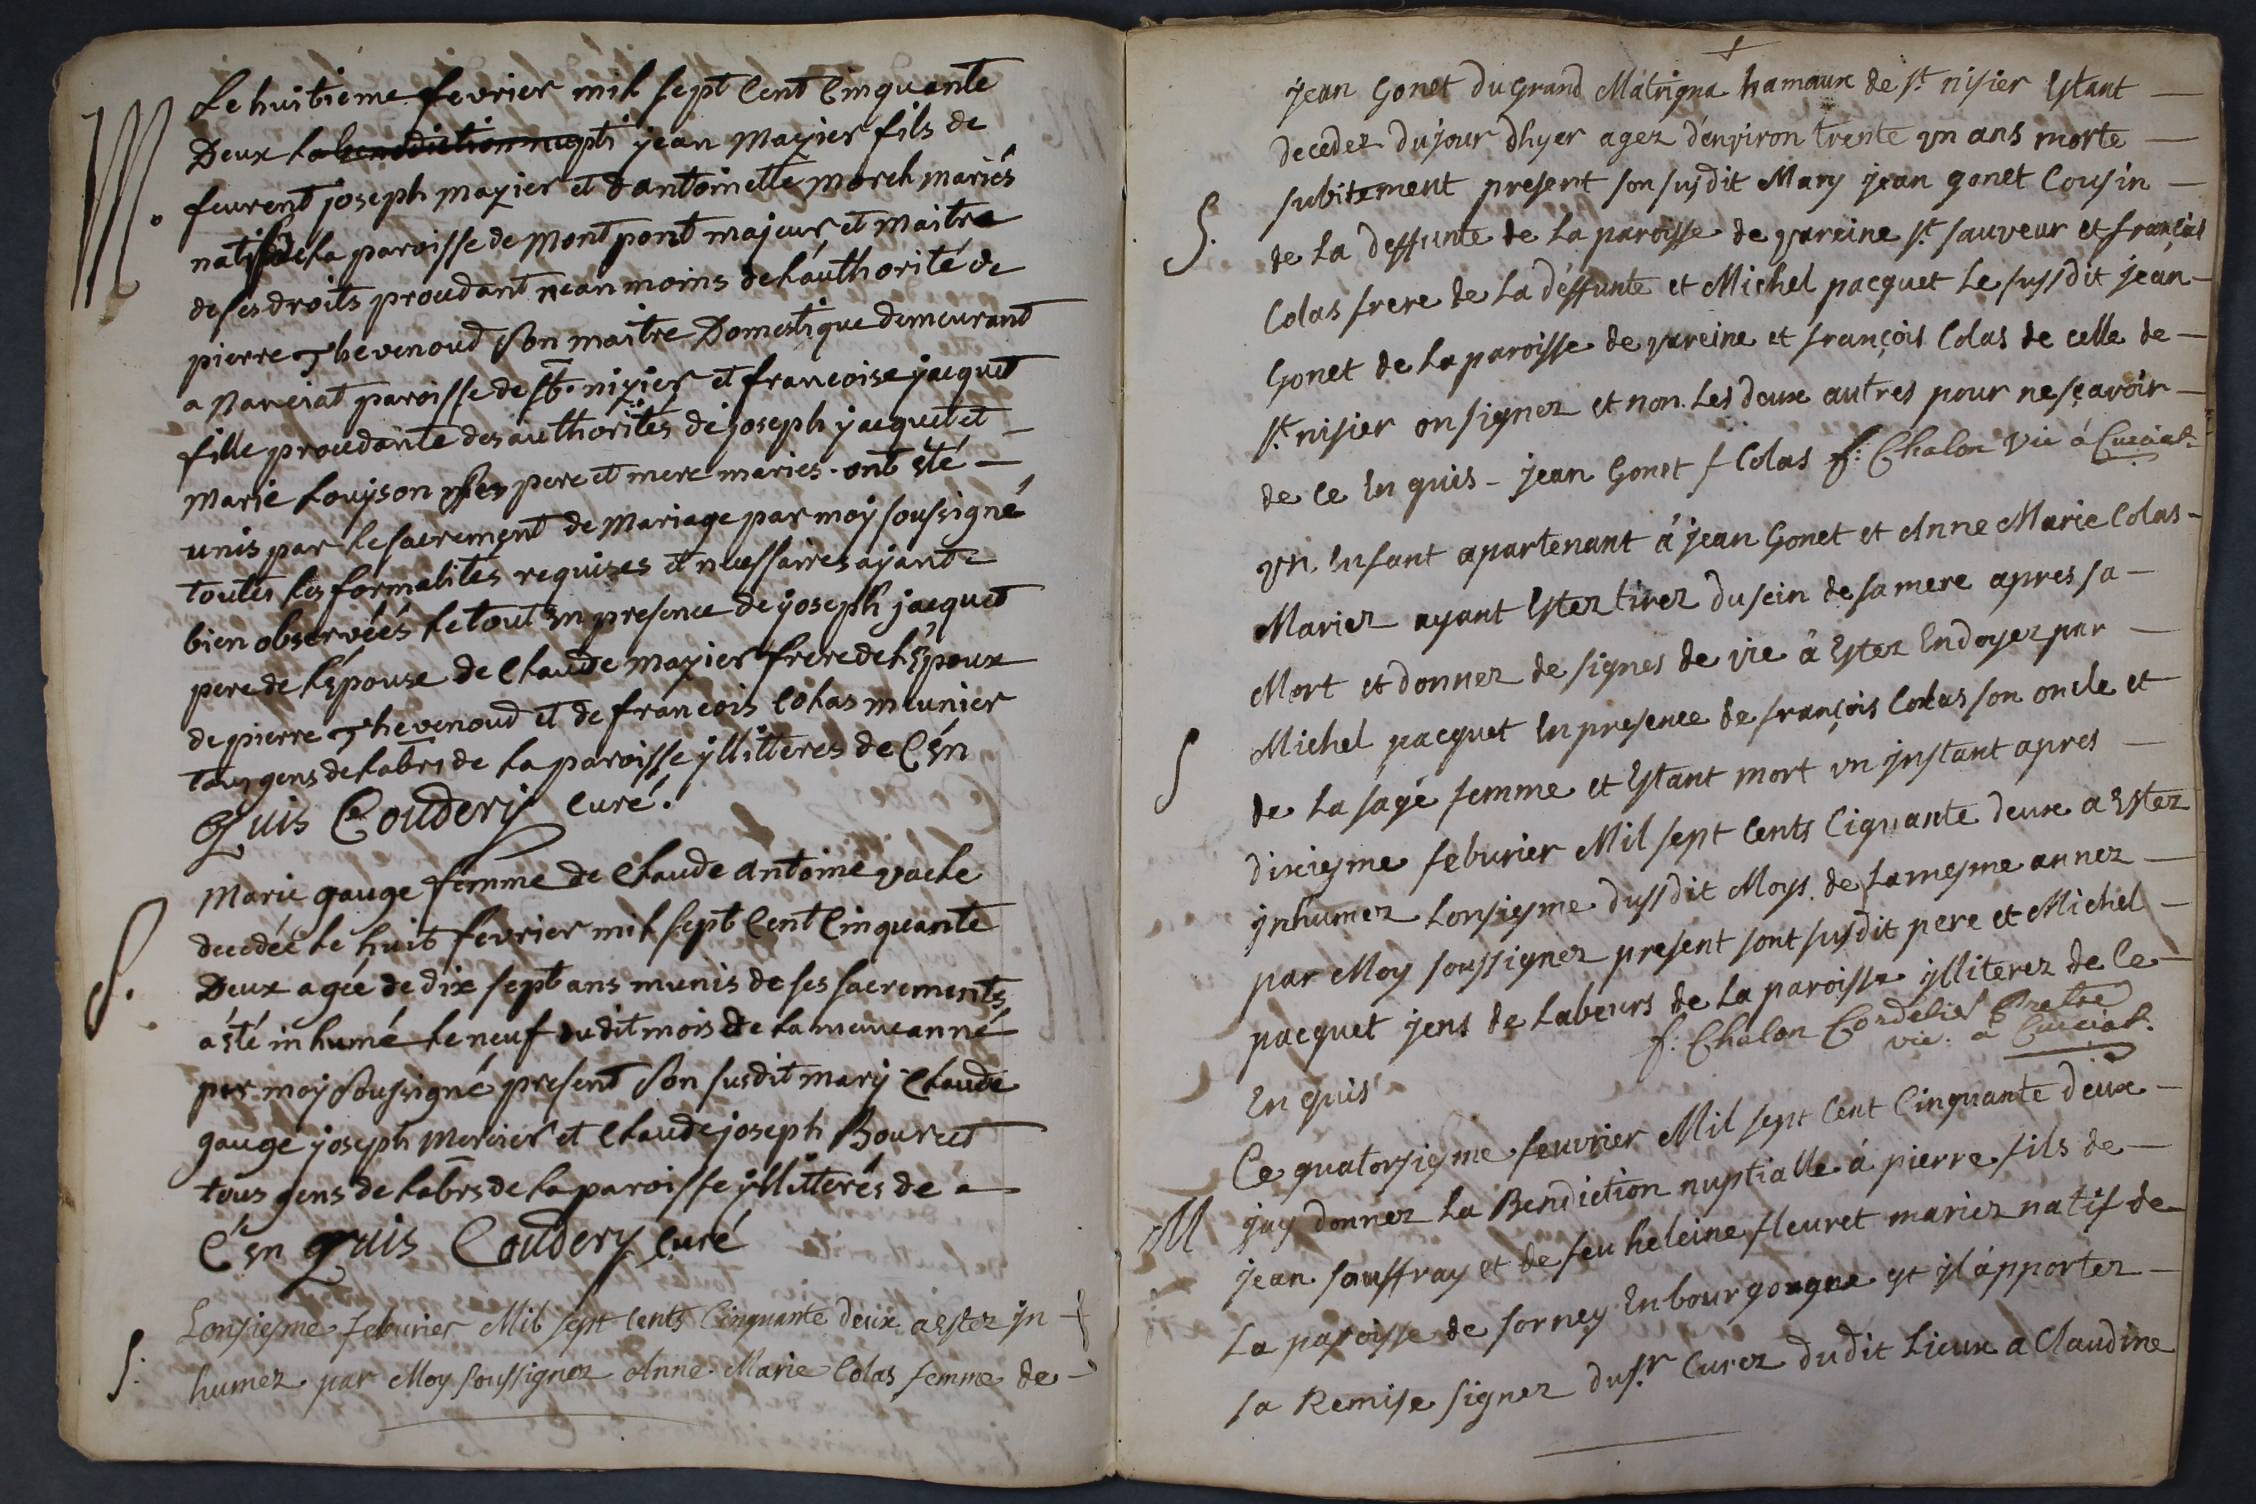 M.
Le huitieme fevrier mil sept Cent Cinquante
Deux La benediction nupti jean Mazier fils de
feurent joseph mazier et d'antoinette morel mariés
natif de La paroisse de Montpont majeur et maitre
de ses droits proudant nean moins de L'authorité de
pierre Thevenoud Son maitre Domestique demeurant
a Marciat paroisse de St. nizier et francoise jacquet
fille proudante des authorités de joseph jacquet et
Marie Louyson ses pere et mere maries. ont été —
unis par Le sacrement de Mariage par moy soussigné
toutes Les formalités requises et necessaires ajant
bien observéés Le tout En presence de joseph jacquet
pere de L'Épouse de Claude Mazier frere de L'Époux
de pierre Thevenoud et de francois Colas meunier
tous gens de Labrs de La paroisse yllitteres de C'én
Quis Coudery Curé.
S.
Marie gauge femme de Claude Antoine vache
decedée Le huit fevrier mil sept Cent Cinquante
Deux agée de dix sept ans munis de ses sacrements
a été inhumé Le neuf dudit mois de La meme anné
par moy Soussigné present Son susdit mary Claude
gauge joseph Mercier et Claude joseph Bouret
tous gens de Labrs de La paroisse yllitterés de a
C'én quis Coudery Curé
S.
Lonsiesme feburier Mil sept Cents Cinquante deux a Estez jn
humez par Moy soussignez Anne Marie Colas femme de -
S.
jean Gonet du grand Matrigna hamaux de st. nisier Estant —
decedez du jour d'hyer agez d'environ trente vn ans morte —
subitement present son susdit Mary jean gonet Cousin —
de La deffunte de La paroisse de vareine st. sauveur et francois
Colas frere de La déffunte et Michel pacquet Le sussdit jean -
Gonet de La paroisse de vareine et françois Colas de celle de —
st. nisier on signez et non Les deux autres pour ne sçavoir —
de ce En quis - jean Gonet f Colas f: Chalon vic á Cuciat.
S
vn Enfant apartenant á jean Gonet et Anne Marie Colas -
Mariez ayant Estez tirez du sein de sa mere apres sa —
Mort et donnez de signes de vie á Estez Endoyez par —
Michel pacquet En presence de françois Colas son oncle et
de La sage femme et Estant mort vn jnstant apres —
dixiesme feburier Mil sept Cents Ciquante deux a Estez
jnhumez Lonsiesme dussdit Moys de La mesme annez —
par Moy soussignez present sont susdit pere et Michel —
pacquet jens de Labeurs de La paroisse ylliterez de Ce —
f: Chalon Cordelier Pretre
vic. á Cuciat.
En quis
M
Ce quatorsiesme feuvrier Mil sept Cent Cinquante deux —
jay donnez La Bendiction nuptialle á pierre fils de —
jean souffray et de feu heleine fleuret mariez natif de
La paroisse de sorney En bourgougne et jl ápportez —
sa Remise signez du sr. Curez dudit Lieux a Claudine